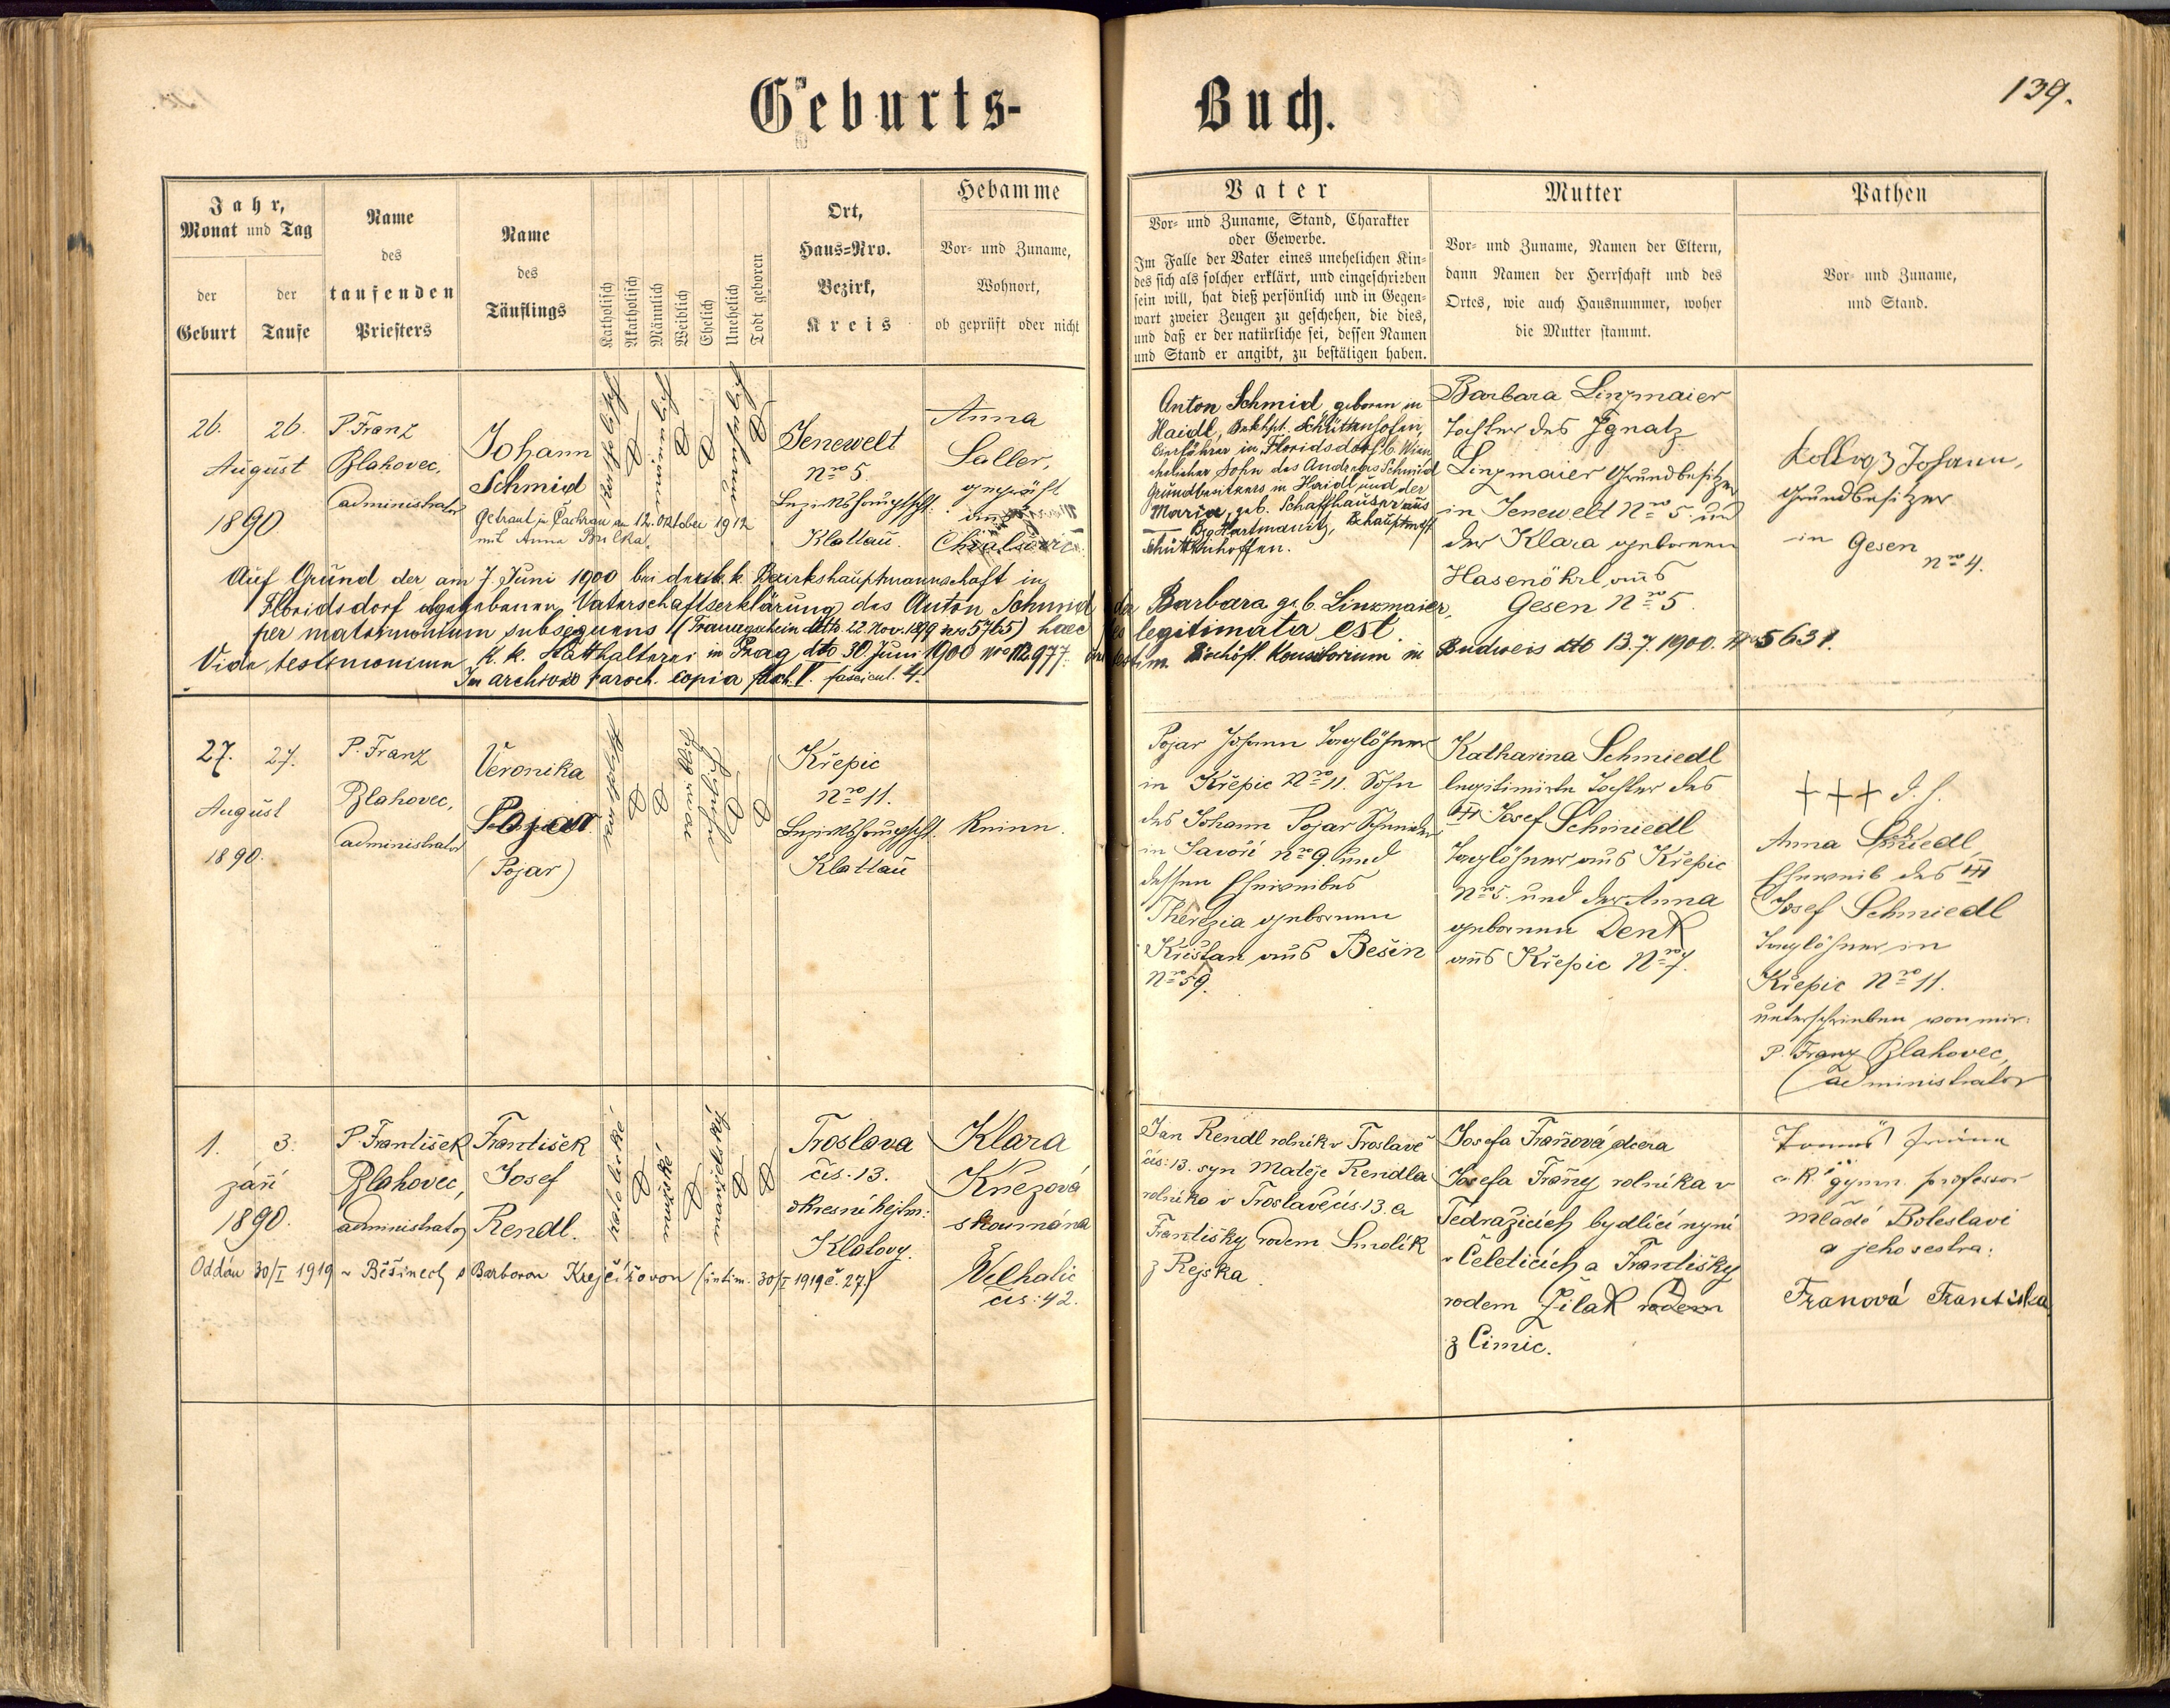 Geburts-
Buch.
139.
Jahr,
Monat und Tag
der
Geburt
der
Taufe
Name
des
taufenden
Priesters
Name
des
Täuflings
Katholisch
Akatholisch
Männlich
Weiblich
Ehelich
Unehelich
Todt geboren
Ort,
Haus-Nro.
Bezirk,
Kreis
Hebamme
Vor- und Zuname,
Wohnort,
ob geprüft oder nicht
Vater
Vor- und Zuname, Stand, Charakter
oder Gewerbe.
Im Falle der Vater eines unehelichen Kin-
des sich als solcher erklärt, und eingeschrieben
sein will, hat dieß persönlich und in Gegen-
wart zweier Zeugen zu geschehen, die dies,
und daß er der natürliche sei, dessen Namen
und Stand er angibt, zu bestätigen haben.
Mutter
Vor- und Zuname, Namen der Eltern,
dann Namen der Herrschaft und des
Ortes, wie auch Hausnummer, woher
die Mutter stammt.
Pathen
Vor- und Zuname,
und Stand.
26. 26.
August
1890
P. Franz
Blahovec,
administrator
Johann
Schmid
Getraut in Čachrau am 12. Oktober 1912
mit Anna
Jenewelt
Nro 5.
Bezirkshauptschft.
Klattau.
Anna
Saller,
geprüft
aus
Anton Schmid geboren in
Haidl, Bzkhpt. Schüttenhofen,
in Floridsdorf b. Wien
ehelicher Sohn des Andreas Schmid
Grundbesitzers in Haidl und der
Maria, geb. Schaffhauser aus
Bzg Hartmanitz, Bzhauptmsft
Schüttenhoffen.
Barbara Linzmaier
Tochter des Ignatz
Linzmaier Grundbesitzer
in Jenewelt Nro 5. und
der Klara geborenen
Hasenöhrl aus
Gesen Nro 5.
Johann,
Grundbesitzer
in Gesen
nro 4.
Auf Grund der am 7. Juni 1900 bei der k. k. Bezirkshauptmannschaft in
Floridsdorf abgegebenen Vaterschaftserklärung des Anton Schmid der Barbara geb. Linzmaier,
per matrimonium subsequens (Trauungsschein dtto 22. Nov. 1899 nro 5765) haec legitimata est.
Vide testimonium k. k. Statthalterei in Prag dto 30. Juni 1900 nro 112.977. Bischöfl. Konsistorium in Budweis dto 13.7.1900. Nro 5631.
In archivo paroch. copia fach. V. fascicul. 4.
27. 27.
August
1890.
P. Franz
Blahovec,
administrator
Veronika
Pojar
(Pojar)
Křepic
Nro 11.
Bezirkshauptschft.
Klattau
Keine.
Pojar Johann Taglöhner
in Křepic Nro 11. Sohn
des Johann Pojar Schneider
in Javoří Nro 9. und
dessen Eheweibes
Therezia geborenen
Křistan aus Bešin
Nro 59.
Katharina Schmiedl
legitimirte Tochter des
Josef Schmiedl
Taglöhner aus Křepic
Nro 5. und der Anna
geborenen Denk
aus Křepic Nro 7.
+++ d. h.
Anna Schmiedl,
Eheweib des
Josef Schmiedl
Taglöhner in
Křepic Nro 11.
unterschrieben von mir:
P. Franz Blahovec,
administrator
1. 3.
září
1890.
P. František
Blahovec,
administrator
František
Josef
Rendl.
katolické
mužské
manželské
Troslava
čís. 13.
okresní hejtm:
Klatovy.
Klara
Knězová
skoumána
Velhatic
čís: 42.
Jan Rendl rolník v Troslavě
čís: 13. syn Matěje Rendla
rolníka v Troslavě čís 13. a
Františky rodem Smolík
z Rejska.
Josefa Fraňová, dcera
Josefa Frány rolníka v
Tedražicích bydlící nyní
v Čeleticích a Františky
rodem Žilak rodem
z Čimic.
c. k. gymn. professor
Mladé Boleslavi
a jeho sestra:
Franová Františka
Oddán 30/I 1919 v Běšinech s Barborou Krejčířovou (intim. 30/I 1919 č. 27.)